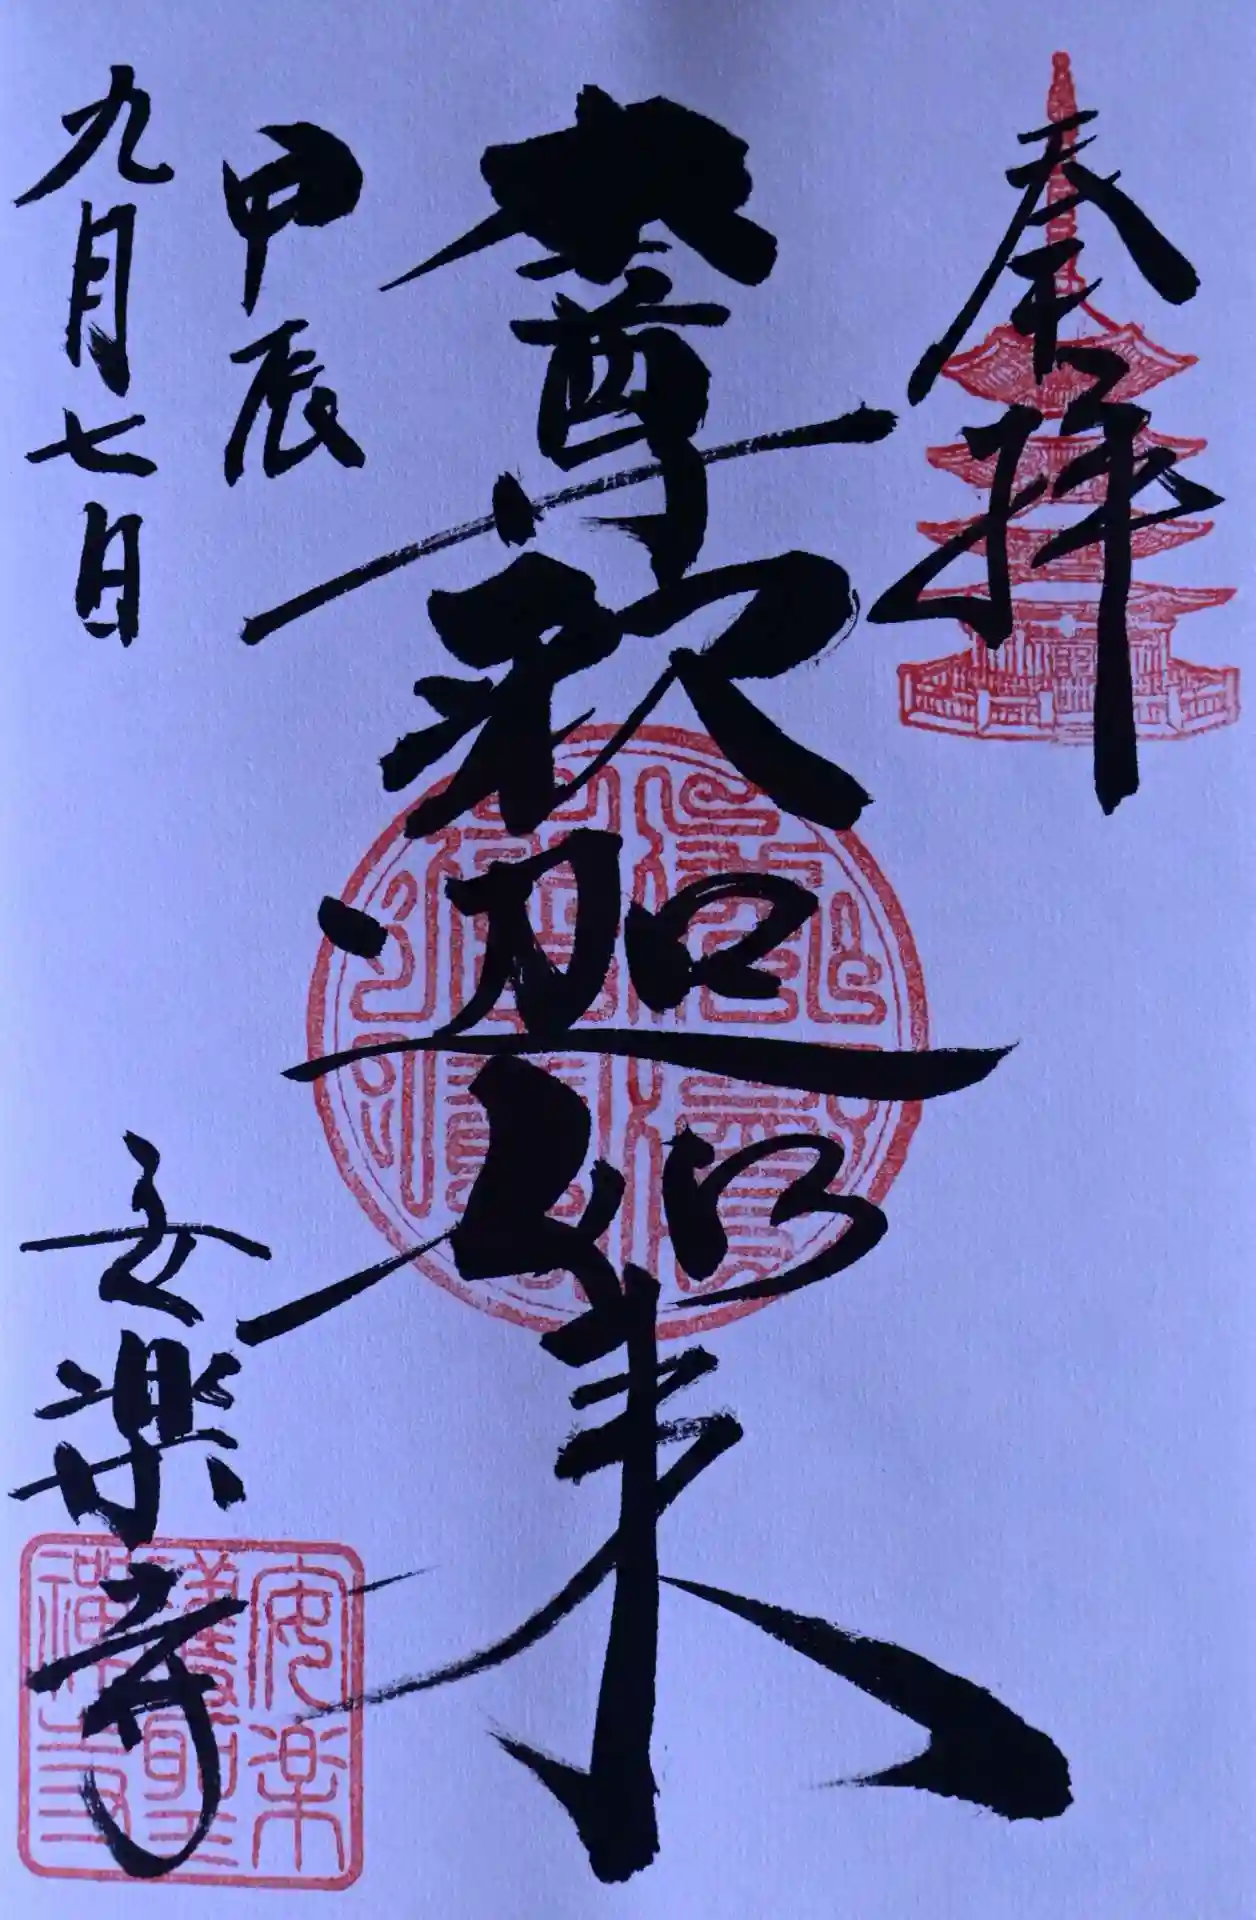 奉拝
本尊釈迦如来
甲辰
九月七日
安楽寺
安楽
護聖
禅寺